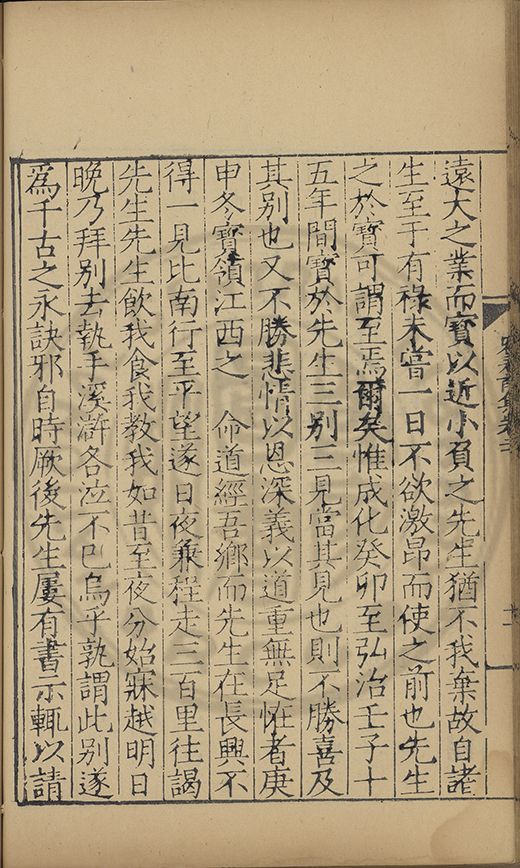 遠大之業而寳以近小負之先生猶不我棄故自諸
生至于有祿未嘗一日不欲激昂而使之前也先生
之於寳可謂至焉爾矣惟成化癸卯至弘治壬子十
五年間寳於先生三别三見當其見也則不勝喜及
其别也又不勝悲情以恩深義以道重無足怪者庚
申冬寳領江西之　命道經吾鄉而先生在長興不
得一見比南行至平望遂日夜兼程走三百里往謁
先生先生飲我食我教我如昔至夜分始寐越明日
晚乃拜别去執手溪滸各泣不巳烏乎孰謂此别遂
爲千古之永訣邪自時厥後先生屢有書示輒以請